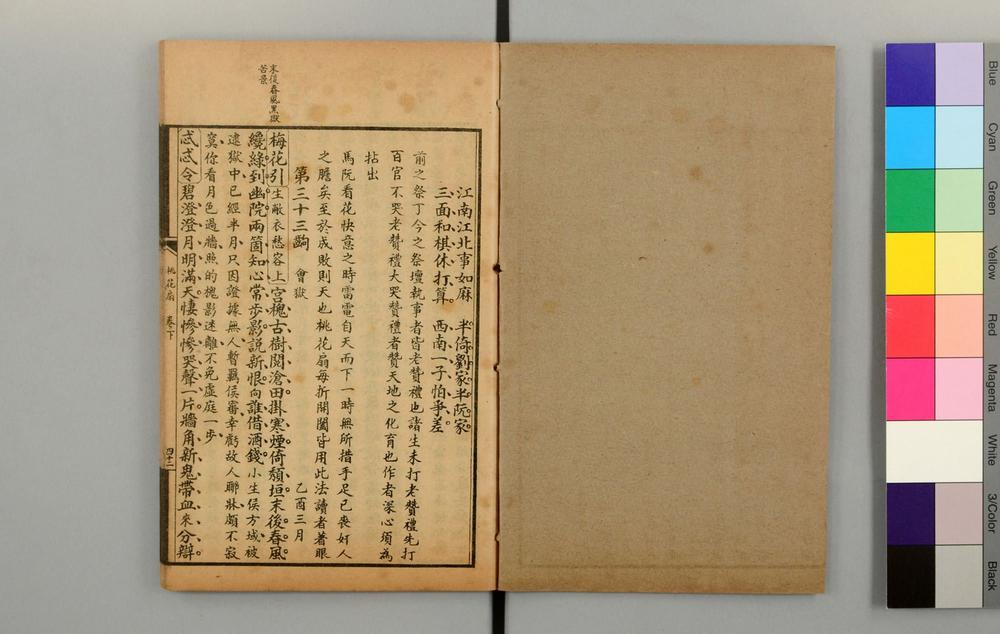 江南江北事如麻　半倚劉家半阮家
三面和棋休打算　西南一子怕爭差
前之祭丁今之祭壇執事者皆老贊禮也諸生未打老贊禮先打
百官不哭老贊禮大哭贊禮者贊天地之化育也作者深心須為
拈出
馬阮看花快意之時雷電自天而下一時無所措手足已喪奸人
之膽矣至於成敗則天也桃花扇每折開闔皆用此法讀者着眼
第三十三齣　會獄　乙酉三月
末後春風黑獄
苦景
梅花引生敝衣愁容上宫槐古樹閱滄田掛寒煙倚頹垣末後春風
纔綠到幽院兩箇知心常步影說新恨向誰借酒錢小生侯方域被
逮獄中已經半月只因證據無人暫羈侯審幸虧故人聯牀頗不寂
寞你看月色過牆照的槐影迷離不免虛庭一步
忒忒令碧澄澄月明滿天悽慘慘哭聲一片牆角新鬼帶血來分辯
桃花扇　卷下
四十二
Blue
Cyan
Green
Yellow
Red
Magenta
White
3/Color
Black